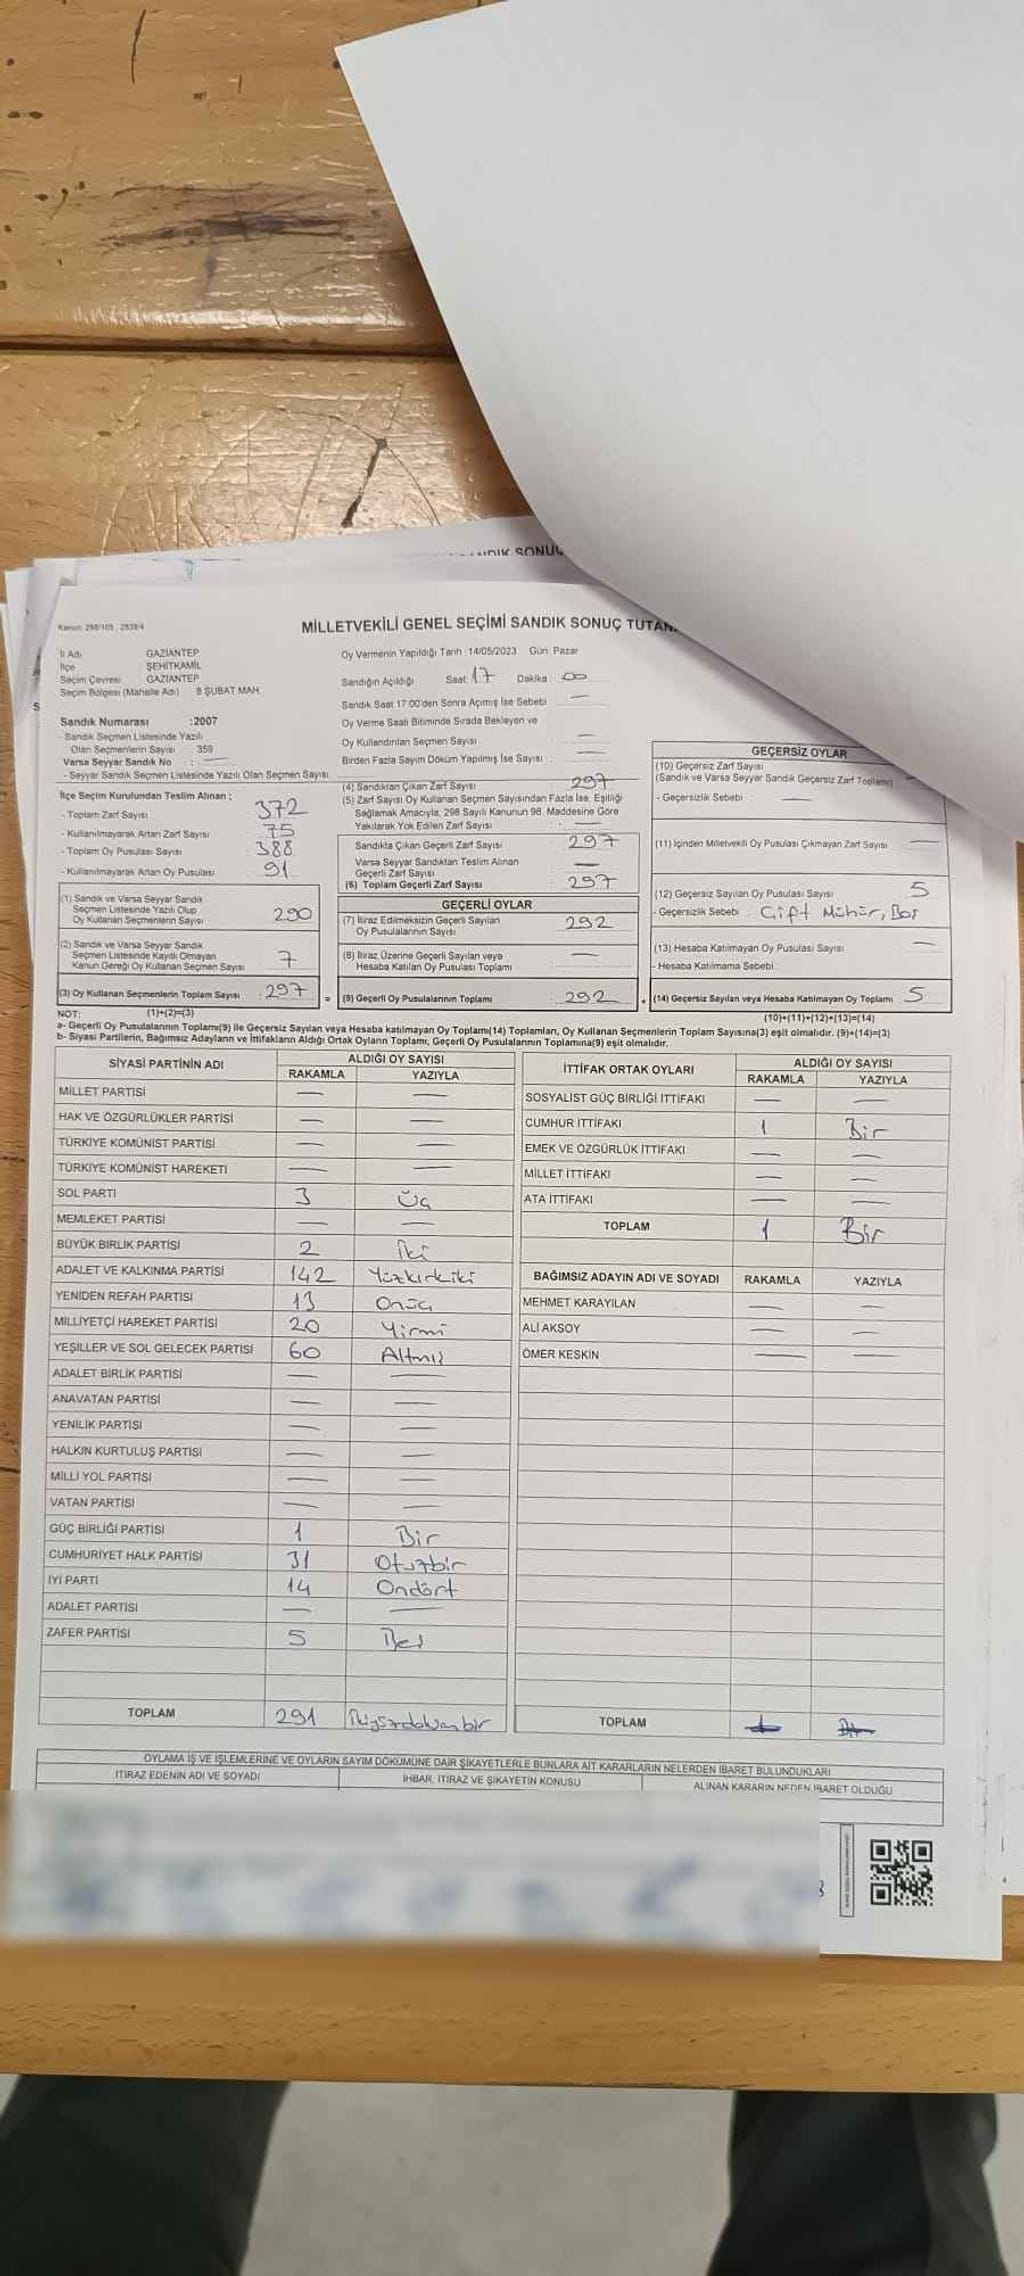 NDIK SONUÇ
Kanun: 298/105 , 2839/4
MİLLETVEKİLİ GENEL SEÇİMİ SANDIK SONUÇ TUTAN
İl Adı GAZİANTEP
İlçe ŞEHİTKAMİL
Seçim Çevresi GAZİANTEP
Seçim Bölgesi (Mahalle Adı) 8 ŞUBAT MAH.
Oy Vermenin Yapıldığı Tarih : 14/05/2023 Gün: Pazar
Sandığın Açıldığı Saat: 17 Dakika : 00
Sandık Saat 17:00'den Sonra Açımış İse Sebebi : —
Oy Verme Saati Bitiminde Sırada Bekleyen ve
Oy Kullandırılan Seçmen Sayısı : —
Birden Fazla Sayım Döküm Yapılmış İse Sayısı : —
Sandık Numarası :2007
- Sandık Seçmen Listesinde Yazılı
Olan Seçmenlerin Sayısı 359
Varsa Seyyar Sandık No : —
- Seyyar Sandık Seçmen Listesinde Yazılı Olan Seçmen Sayısı:
İlçe Seçim Kurulundan Teslim Alınan :
- Toplam Zarf Sayısı 372
- Kullanılmayarak Artan Zarf Sayısı 75
- Toplam Oy Pusulası Sayısı 388
- Kullanılmayarak Artan Oy Pusulası 91
(1) Sandık ve Varsa Seyyar Sandık
Seçmen Listesinde Yazılı Olup
Oy Kullanan Seçmenlerin Sayısı 290
(2) Sandık ve Varsa Seyyar Sandık
Seçmen Listesinde Kayıtlı Olmayan
Kanun Gereği Oy Kullanan Seçmen Sayısı 7
(3) Oy Kullanan Seçmenlerin Toplam Sayısı : 297
(4) Sandıktan Çıkan Zarf Sayısı 297
(5) Zarf Sayısı Oy Kullanan Seçmen Sayısından Fazla İse, Eşitliği
Sağlamak Amacıyla, 298 Sayılı Kanunun 98. Maddesine Göre
Yakılarak Yok Edilen Zarf Sayısı : —
Sandıkta Çıkan Geçerli Zarf Sayısı : 297
Varsa Seyyar Sandıktan Teslim Alınan
Geçerli Zarf Sayısı : —
(6) Toplam Geçerli Zarf Sayısı : 297
GEÇERLİ OYLAR
(7) İtiraz Edilmeksizin Geçerli Sayılan
Oy Pusulalarının Sayısı : 292
(8) İtiraz Üzerine Geçerli Sayılan veya
Hesaba Katılan Oy Pusulası Toplamı : —
= (9) Geçerli Oy Pusulalarının Toplamı : 292
GEÇERSİZ OYLAR
(10) Geçersiz Zarf Sayısı
(Sandık ve Varsa Seyyar Sandık Geçersiz Zarf Toplamı)
- Geçersizlik Sebebi : —
(11) İçinden Milletvekili Oy Pusulası Çıkmayan Zarf Sayısı —
(12) Geçersiz Sayılan Oy Pusulası Sayısı 5
- Geçersizlik Sebebi : Çift Mühür, Boş
(13) Hesaba Katılmayan Oy Pusulası Sayısı —
- Hesaba Katılmama Sebebi:
+ (14) Geçersiz Sayılan veya Hesaba Katılmayan Oy Toplamı 5
NOT: (1)+(2)=(3) (10)+(11)+(12)+(13)=(14)
a- Geçerli Oy Pusulalarının Toplamı(9) ile Geçersiz Sayılan veya Hesaba katılmayan Oy Toplamı(14) Toplamları, Oy Kullanan Seçmenlerin Toplam Sayısına(3) eşit olmalıdır. (9)+(14)=(3)
b- Siyasi Partilerin, Bağımsız Adayların ve İttifakların Aldığı Ortak Oyların Toplamı, Geçerli Oy Pusulalarının Toplamına(9) eşit olmalıdır.
SİYASİ PARTİNİN ADI ALDIĞI OY SAYISI
RAKAMLA YAZIYLA
MİLLET PARTİSİ — —
HAK VE ÖZGÜRLÜKLER PARTİSİ — —
TÜRKİYE KOMÜNİST PARTİSİ — —
TÜRKİYE KOMÜNİST HAREKETİ — —
SOL PARTİ 3 Üç
MEMLEKET PARTİSİ — —
BÜYÜK BİRLİK PARTİSİ 2 İki
ADALET VE KALKINMA PARTİSİ 142 Yüzkırkiki
YENİDEN REFAH PARTİSİ 13 Onüç
MİLLİYETÇİ HAREKET PARTİSİ 20 Yirmi
YEŞİLLER VE SOL GELECEK PARTİSİ 60 Altmış
ADALET BİRLİK PARTİSİ — —
ANAVATAN PARTİSİ — —
YENİLİK PARTİSİ — —
HALKIN KURTULUŞ PARTİSİ — —
MİLLİ YOL PARTİSİ — —
VATAN PARTİSİ — —
GÜÇ BİRLİĞİ PARTİSİ 1 Bir
CUMHURİYET HALK PARTİSİ 31 Otuzbir
İYİ PARTİ 14 Ondört
ADALET PARTİSİ — —
ZAFER PARTİSİ 5 Beş
TOPLAM 291 İkiyüzdoksanbir
İTTİFAK ORTAK OYLARI ALDIĞI OY SAYISI
RAKAMLA YAZIYLA
SOSYALİST GÜÇ BİRLİĞİ İTTİFAKI — —
CUMHUR İTTİFAKI 1 Bir
EMEK VE ÖZGÜRLÜK İTTİFAKI — —
MİLLET İTTİFAKI — —
ATA İTTİFAKI — —
TOPLAM 1 Bir
BAĞIMSIZ ADAYIN ADI VE SOYADI RAKAMLA YAZIYLA
MEHMET KARAYILAN — —
ALİ AKSOY — —
ÖMER KESKİN — —
TOPLAM
OYLAMA İŞ VE İŞLEMLERİNE VE OYLARIN SAYIM DÖKÜMÜNE DAİR ŞİKAYETLERLE BUNLARA AİT KARARLARIN NELERDEN İBARET BULUNDUKLARI
İTİRAZ EDENİN ADI VE SOYADI İHBAR, İTİRAZ VE ŞİKAYETİN KONUSU ALINAN KARARIN NEDEN İBARET OLDUĞU